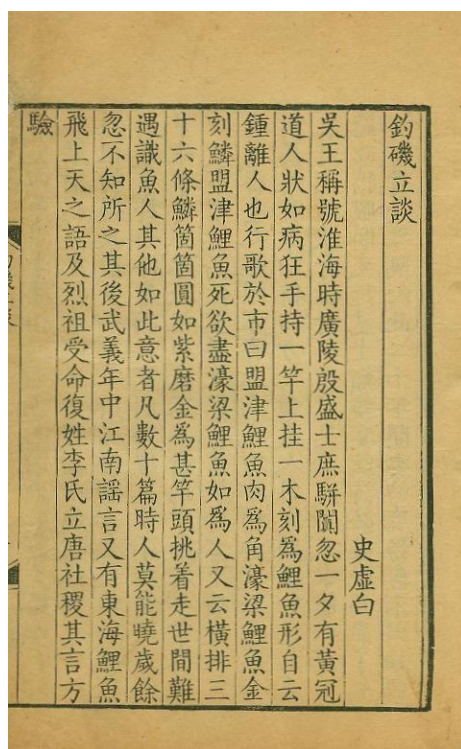 釣磯立談
史虛白
吳王稱號淮海時廣陵殷盛士庶駢闐忽一夕有黃冠
道人狀如病狂手持一竿上挂一木刻爲鯉魚形自云
鍾離人也行歌於市曰盟津鯉魚肉爲角濠梁鯉魚金
刻鱗盟津鯉魚死欲盡濠梁鯉魚如爲人又云橫排三
十六條鱗箇箇圓如紫磨金爲甚竿頭挑着走世間難
遇識魚人其他如此意者凡數十篇時人莫能曉歲餘
忽不知所之其後武義年中江南謠言又有東海鯉魚
飛上天之語及烈祖受命復姓李氏立唐社稷其言方
驗